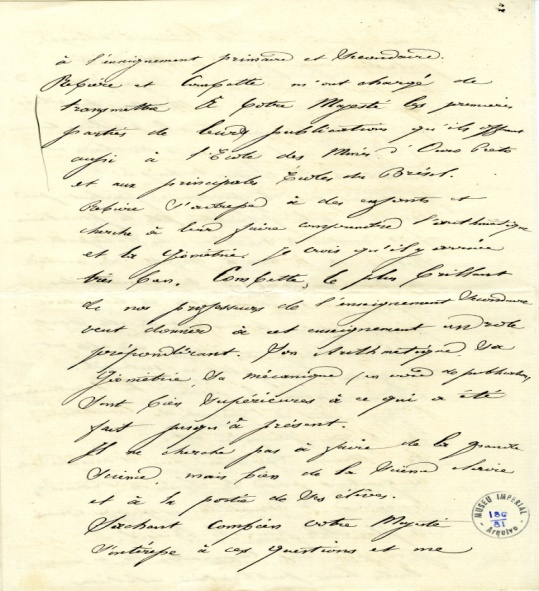 à l'enseignement primaire et secondaire.
Rebière et Combette m'ont chargé de
transmettre à Votre Majesté les premières
parties de leurs publications qu'ils offrent
aussi à l'Ecole des Mines d'Ouro Preto
et aux principales Écoles du Brésil.
Rebière s'adresse à des enfants et
cherche à leur faire comprendre l'arithmétique
et la Géométrie, je crois qu'il y arrive
très bien. Combette, le plus brillant
de nos professeurs de l'enseignement secondaire
veut donner à cet enseignement un rôle
prépondérant. Son Arithmétique, sa
Géométrie, sa mécanique (en voie de publication)
sont bien supérieures à ce qui a été
fait jusqu'à présent.
Il ne cherche pas à faire de la grande
science, mais bien de la science claire
et à la portée de ses élèves.
Sachant combien votre Majesté
s'intéresse à ces questions et me
MUSEU IMPERIAL
Arquivo